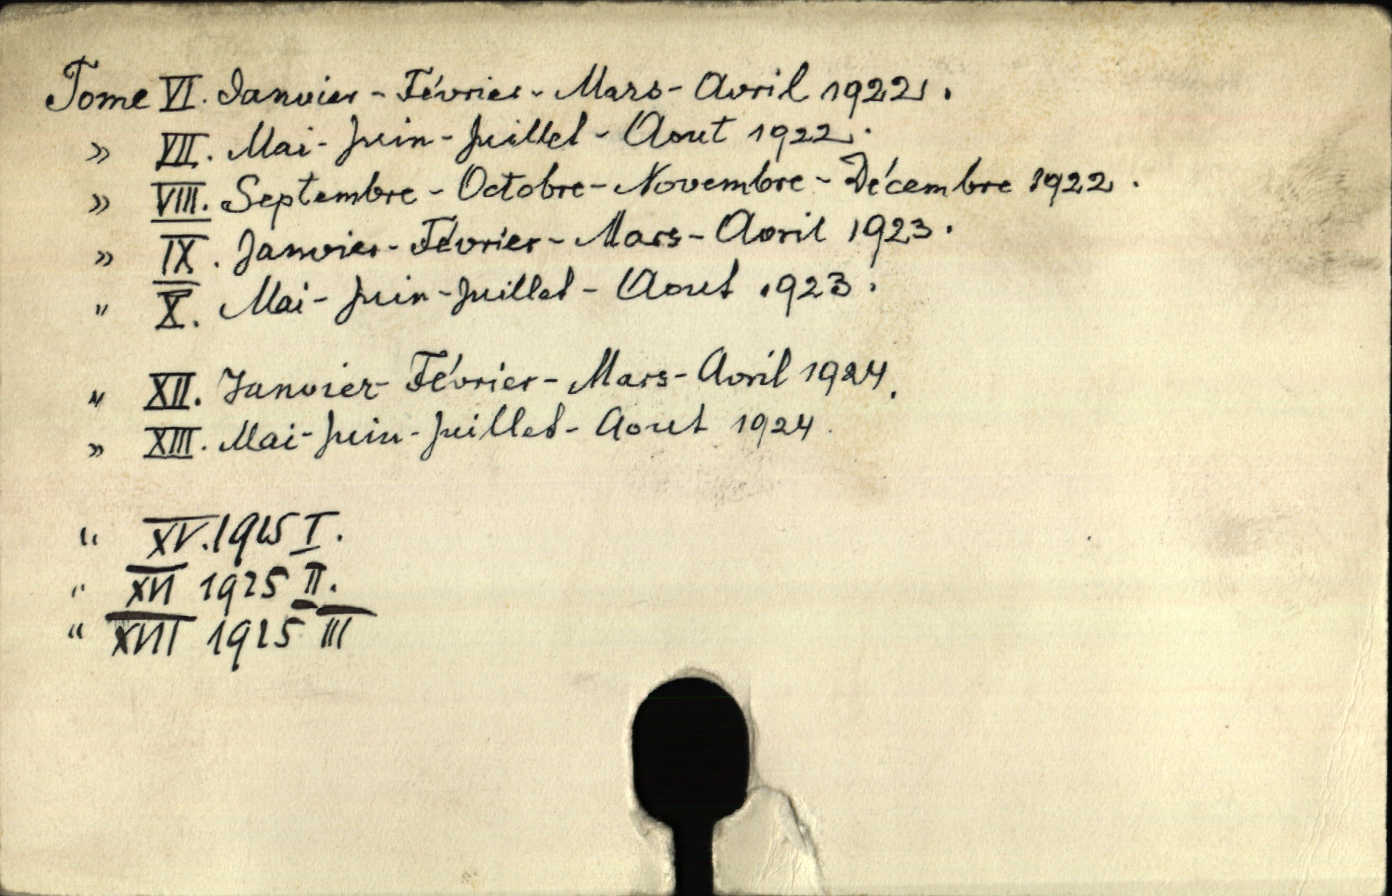 Tome VI. Janvier - Février - Mars - Avril 1922.
» VII. Mai - Juin - Juillet - Aout 1922.
» VIII. Septembre - Octobre - Novembre - Décembre 1922.
» IX. Janvier - Février - Mars - Avril 1923.
" X. Mai - Juin - Juillet - Aout 1923.
" XII. Janvier - Février - Mars - Avril 1924.
» XIII. Mai - Juin - Juillet - Aout 1924.
" XV. 1925 I.
" XVI 1925 II.
" XVII 1925 III